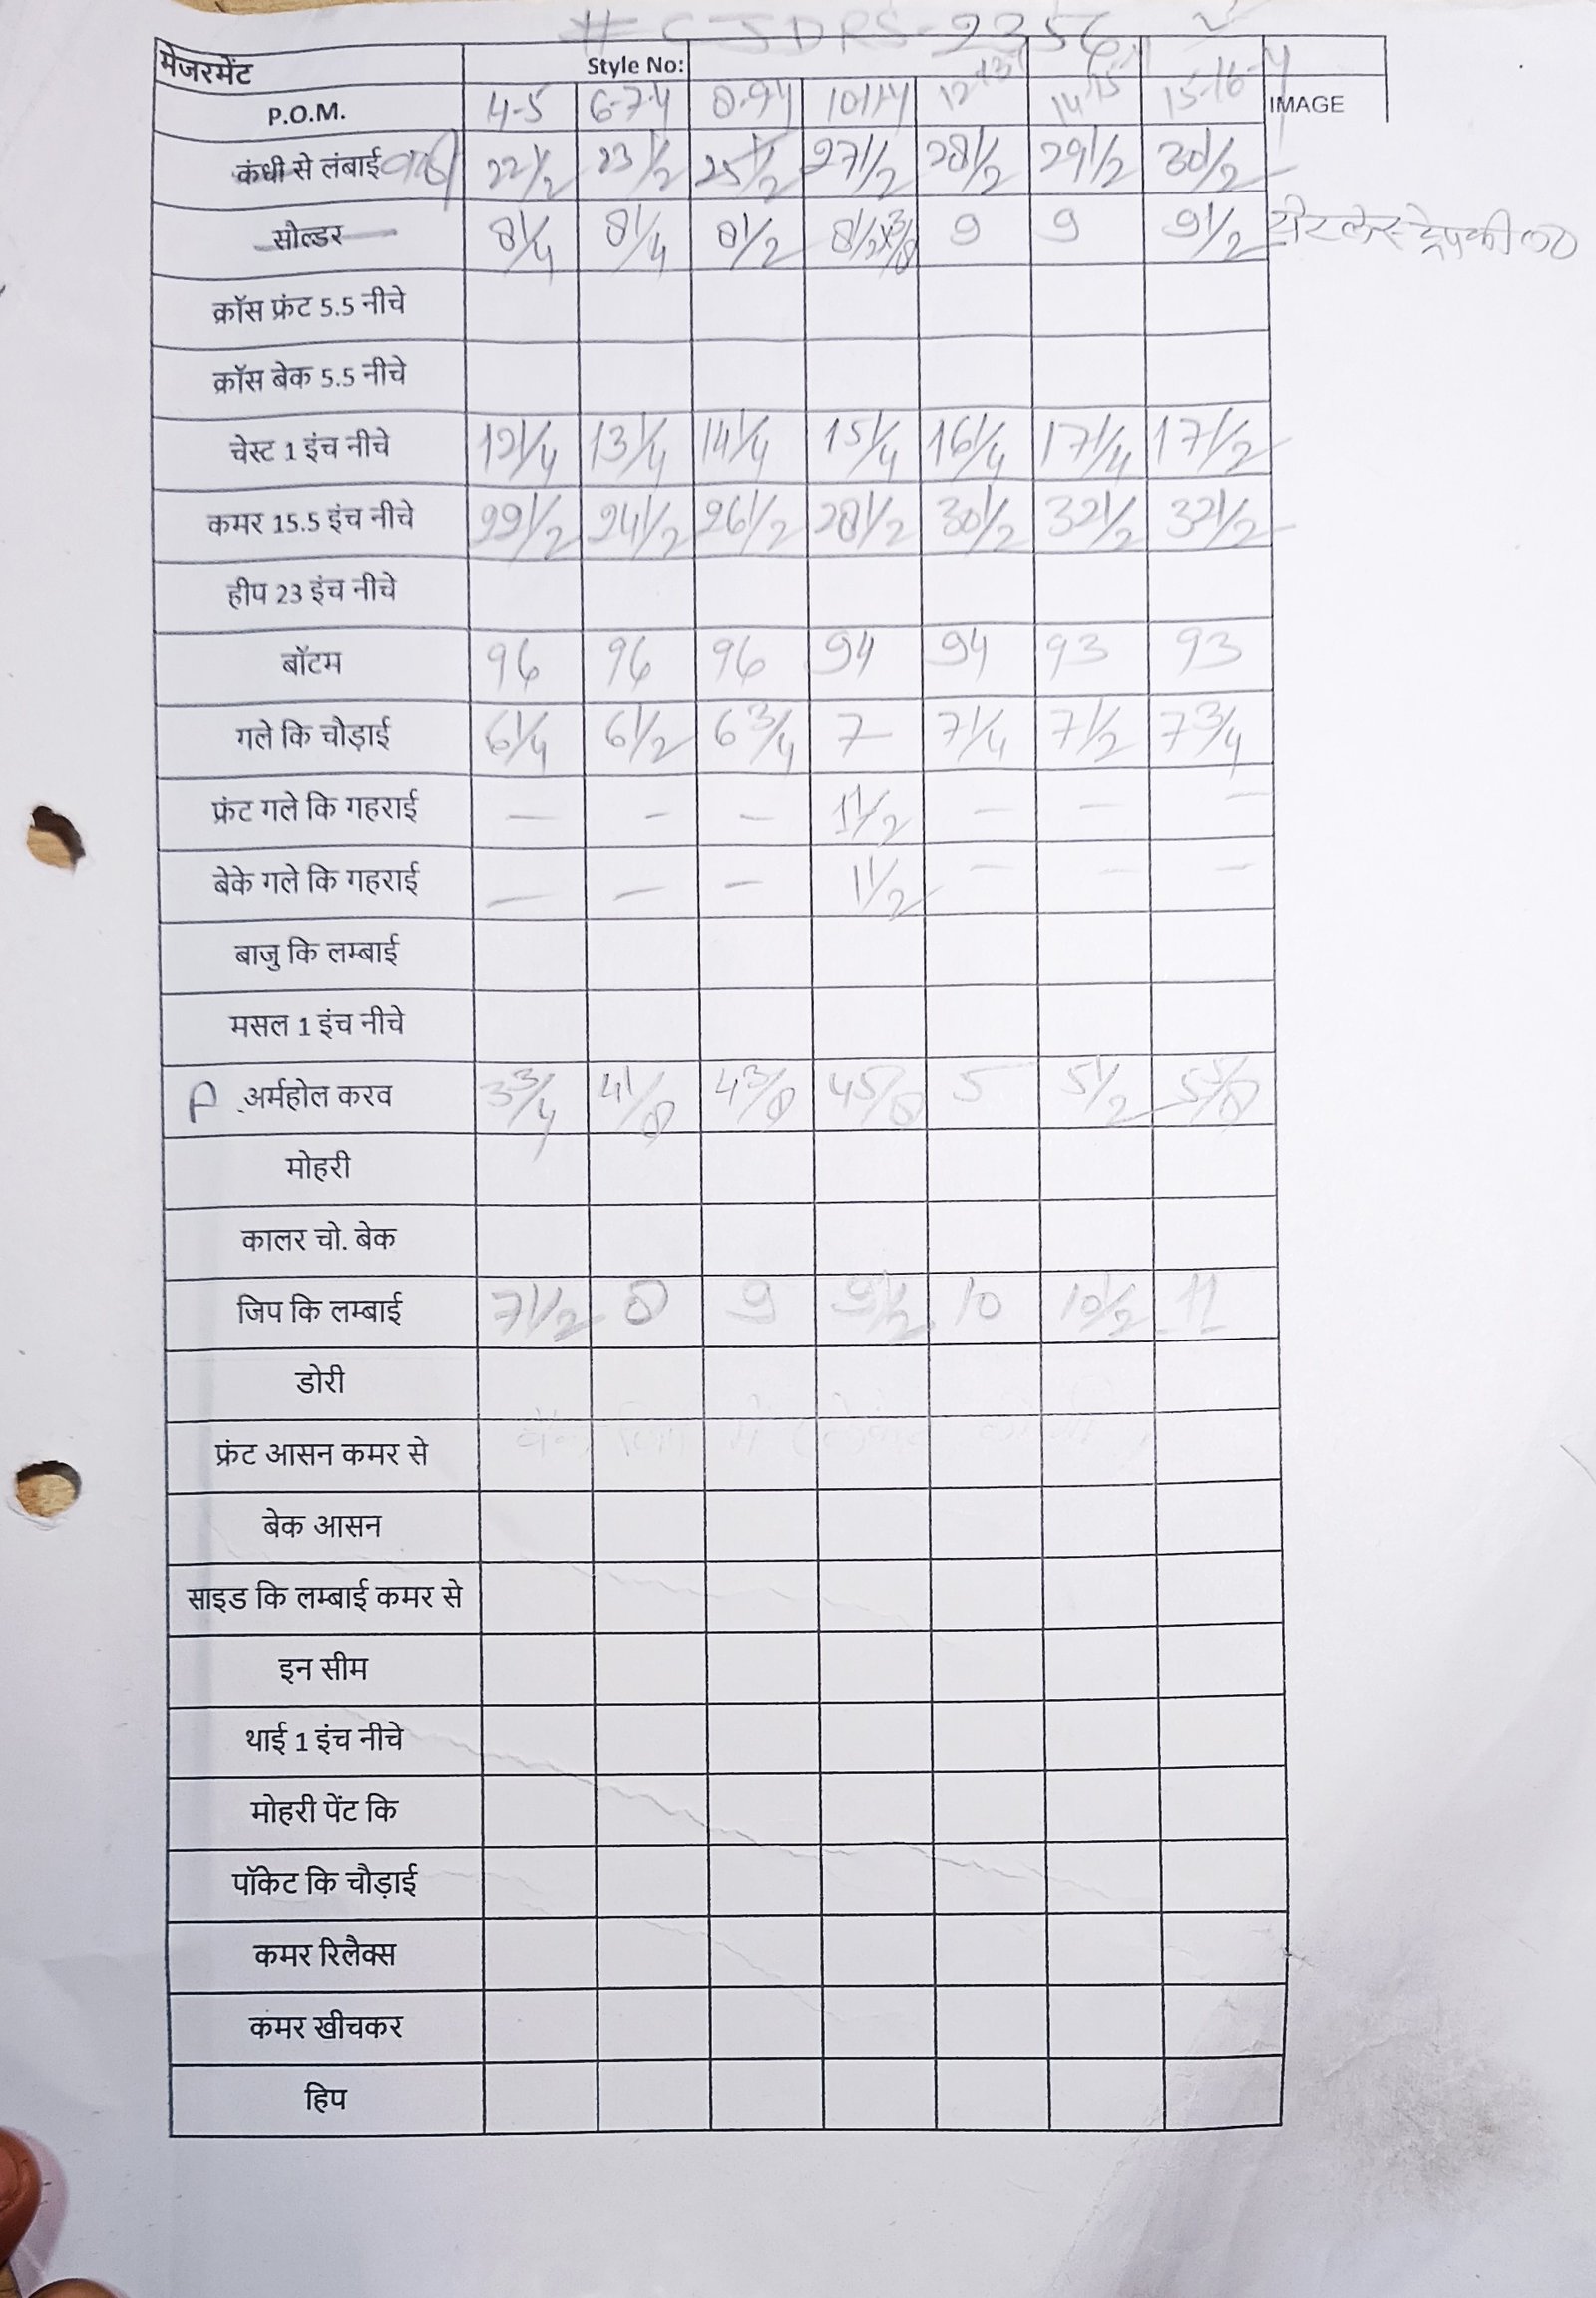 # CJDRS-2356
मेजरमेंट Style No:
P.O.M. 4-5 6-7-Y 8-9Y 10-11-Y 12-13 14-15-Y 15-16-Y IMAGE
कंधी से लंबाई 22 1/2 23 1/2 25 1/2 27 1/2 28 1/2 29 1/2 30 1/2
सोल्डर 8 1/4 8 1/4 8 1/2 8 1/2 x 3/8 9 9 9 1/2
क्रॉस फ्रंट 5.5 नीचे
क्रॉस बेक 5.5 नीचे
चेस्ट 1 इंच नीचे 12 1/4 13 1/4 14 1/4 15 1/4 16 1/4 17 1/4 17 1/2
कमर 15.5 इंच नीचे 22 1/2 24 1/2 26 1/2 28 1/2 30 1/2 32 1/2 32 1/2
हीप 23 इंच नीचे
बॉटम 96 96 96 94 94 93 93
गले कि चौड़ाई 6 1/4 6 1/2 6 3/4 7 7 1/4 7 1/2 7 3/4
फ्रंट गले कि गहराई — - - 1 1/2 - - -
बेके गले कि गहराई — - - 1 1/2 - - -
बाजु कि लम्बाई
मसल 1 इंच नीचे
A .अर्महोल करव 3 3/4 4 1/8 4 3/8 4 5/8 5 5 1/2 5 5/8
मोहरी
कालर चो. बेक
जिप कि लम्बाई 7 1/2 8 9 9 1/2 10 10 1/2 11
डोरी
फ्रंट आसन कमर से
बेक आसन
साइड कि लम्बाई कमर से
इन सीम
थाई 1 इंच नीचे
मोहरी पेंट कि
पॉकेट कि चौड़ाई
कमर रिलैक्स
कमर खीचकर
हिप